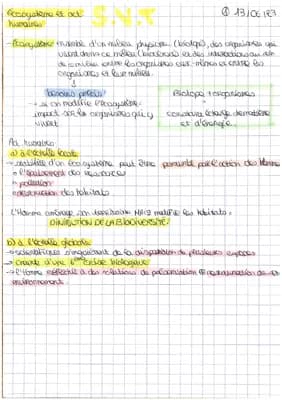 Ecosystème et act humaines
S.N.T
① 13/06/23
- Ecosystème: ensemble d'un milieu physique (biotope), des organismes qui
vivent dans ce milieu (biocénose) et des interactions au sein
de ce milieu entre les organismes eux-mêmes et entre les
organismes et leur milieu.
besoins précis
→ si on modifie l'écosystème:
impact sur les organismes qui y
vivent
Biotope + organismes
échange de matière
et d'énergie.
Act humaines
a) à l'échelle locale
→ stabilité d'un écosystème peut être perturbé par l'action des Hommes
→ l'épuisement des ressources
→ pollution
→ destruction des habitats
L'Homme aménage son territoire MAIS modifie les habitats =
DIMINUTION DE LA BIODIVERSITÉ!
b) à l'échelle globale
→ scientifiques s'inquiètent de la disparition de plusieurs espèces
→ crainte d'une 6ème crise biologique
→ l'Homme réfléchit à des solutions de préservation et restauration de
environnement.